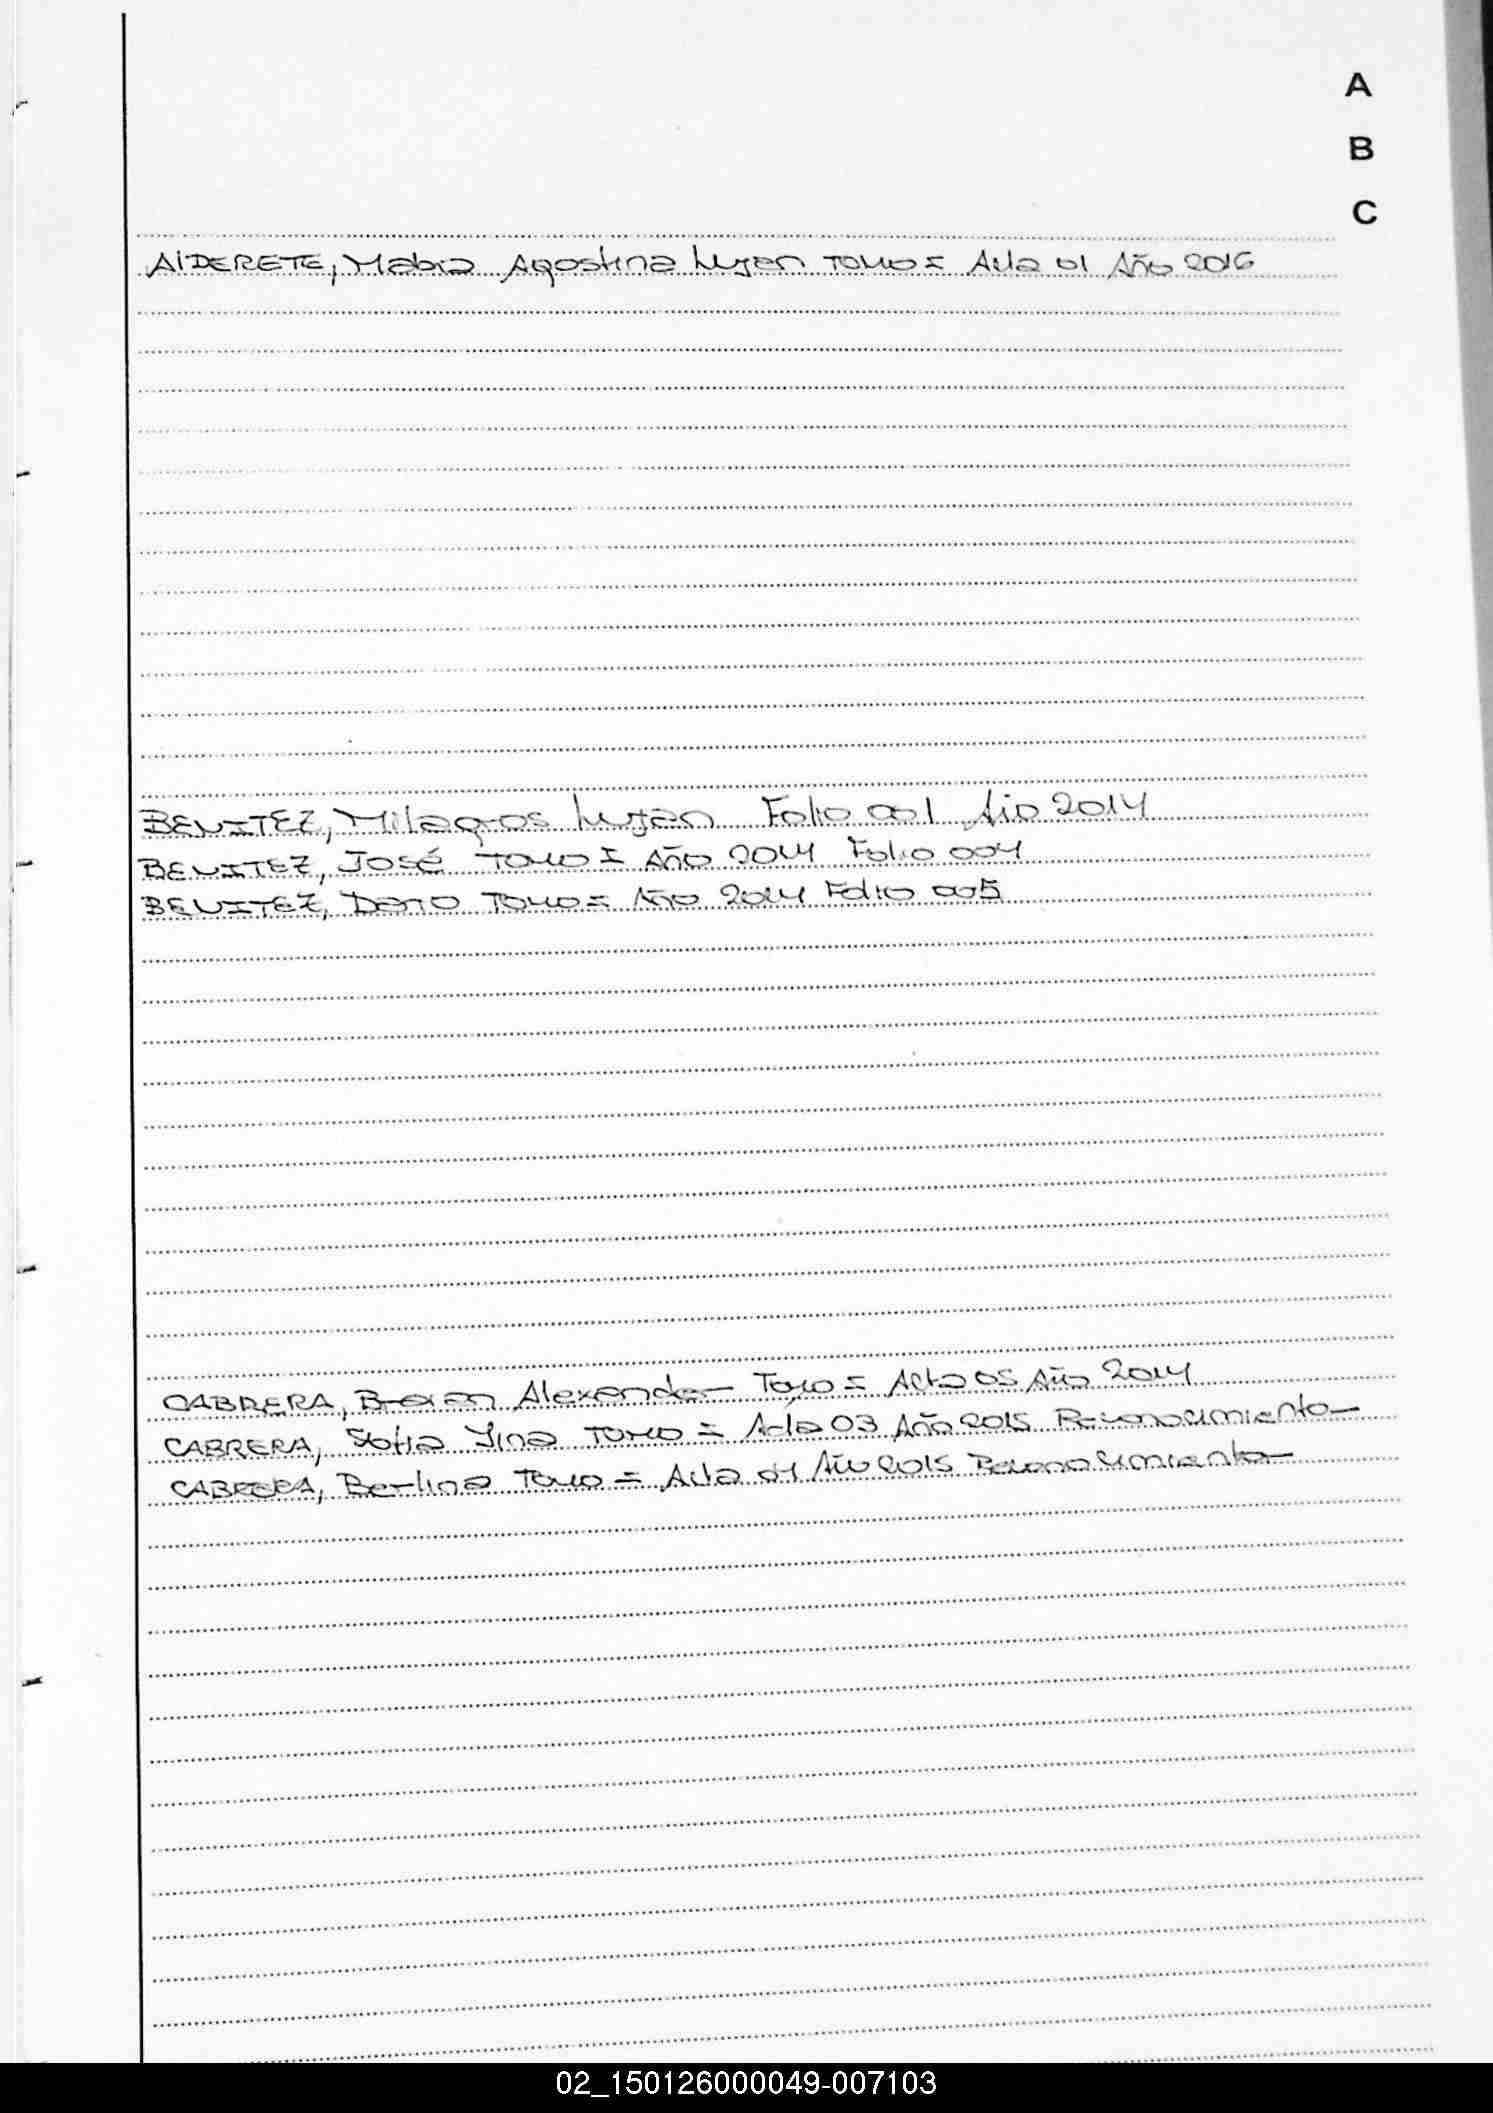 A
B
C
AlDERETE, Maria Agostina Lujan Tomo I Acta 01 Año 2016
BENITEZ, Milagros Lujan Folio 001 Año 2014
BENITEZ, José Tomo I Año 2014 Folio 004
BENITEZ, Dario Tomo I Año 2014 Folio 005
CABRERA, Braian Alexander Tomo I Acta 05 Año 2014
CABRERA, Sofia Yina Tomo I Acta 03 Año 2015 Reconocimiento
CABRERA, Berlina Tomo I Acta 04 Año 2015 Reconocimiento
02_150126000049-007103